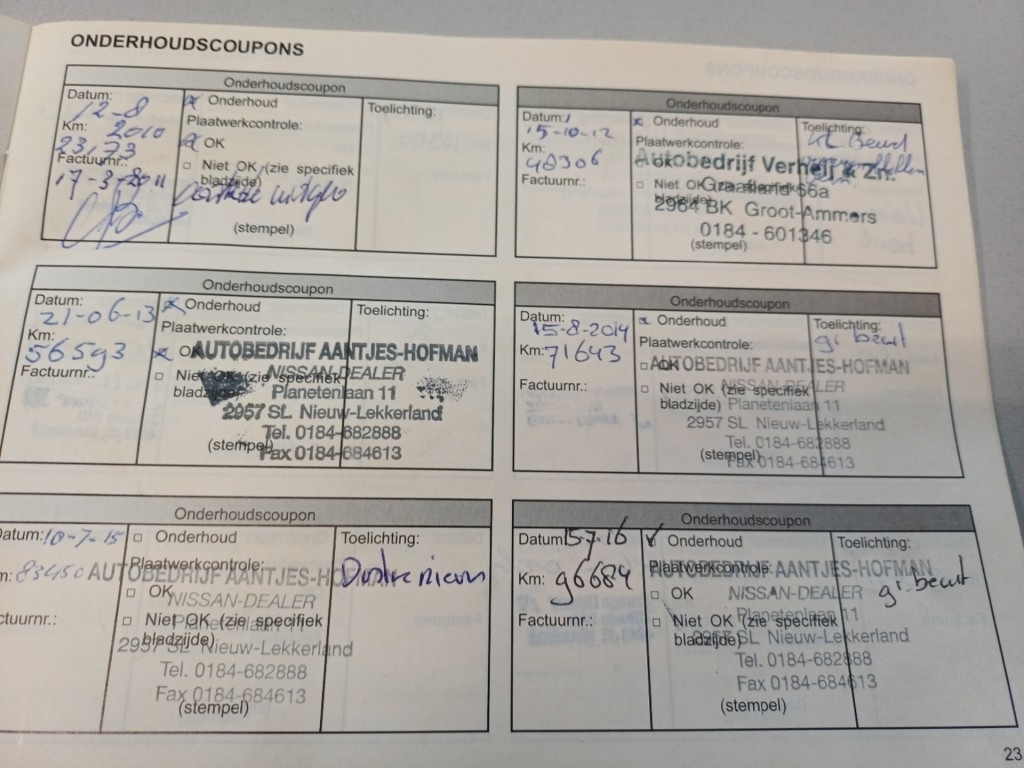 ONDERHOUDSCOUPONS
Onderhoudscoupon
Datum: 12-8
2010
Km: 23,73
Factuurnr.:
17-3-2011
x Onderhoud
Plaatwerkcontrole:
x OK
Niet OK (zie specifiek
bladzijde)
(stempel)
Toelichting:
Onderhoudscoupon
Datum: 15-10-12
Km: 40306
Factuurnr.:
x Onderhoud
Plaatwerkcontrole:
OK
Niet OK
(stempel)
Toelichting:
kl. Beurt
Autobedrijf Verheij & Zn.
Graafland 56a
2964 BK Groot-Ammers
0184 - 601346
Onderhoudscoupon
Datum: 21-06-13
Km: 56593
Factuurnr.:
x Onderhoud
Plaatwerkcontrole:
x OK
Niet OK (zie specifiek
bladzijde)
(stempel)
Toelichting:
AUTOBEDRIJF AANTJES-HOFMAN
NISSAN-DEALER
Planetenlaan 11
2957 SL Nieuw-Lekkerland
Tel. 0184-682888
Fax 0184-684613
Onderhoudscoupon
Datum: 15-8-2014
Km: 71643
Factuurnr.:
x Onderhoud
Plaatwerkcontrole:
OK
Niet OK (zie specifiek
bladzijde)
(stempel)
Toelichting:
gr beurt
AUTOBEDRIJF AANTJES-HOFMAN
NISSAN-DEALER
Planetenlaan 11
2957 SL Nieuw-Lekkerland
Tel. 0184-682888
Fax 0184-684613
Onderhoudscoupon
Datum: 10-7-15
m: 83450
tuurnr.:
Onderhoud
Plaatwerkcontrole:
OK
Niet OK (zie specifiek
bladzijde)
(stempel)
Toelichting:
AUTOBEDRIJF AANTJES-HO
NISSAN-DEALER
Planetenlaan 11
2957 SL Nieuw-Lekkerland
Tel. 0184-682888
Fax 0184-684613
Onderhoudscoupon
Datum 15-7-16
Km: 96684
Factuurnr.:
Onderhoud
Plaatwerkcontrole:
OK
Niet OK (zie specifiek
bladzijde)
(stempel)
Toelichting:
gr. beurt
AUTOBEDRIJF AANTJES-HOFMAN
NISSAN-DEALER
Planetenlaan 11
2957 SL Nieuw-Lekkerland
Tel. 0184-682888
Fax 0184-684613
23